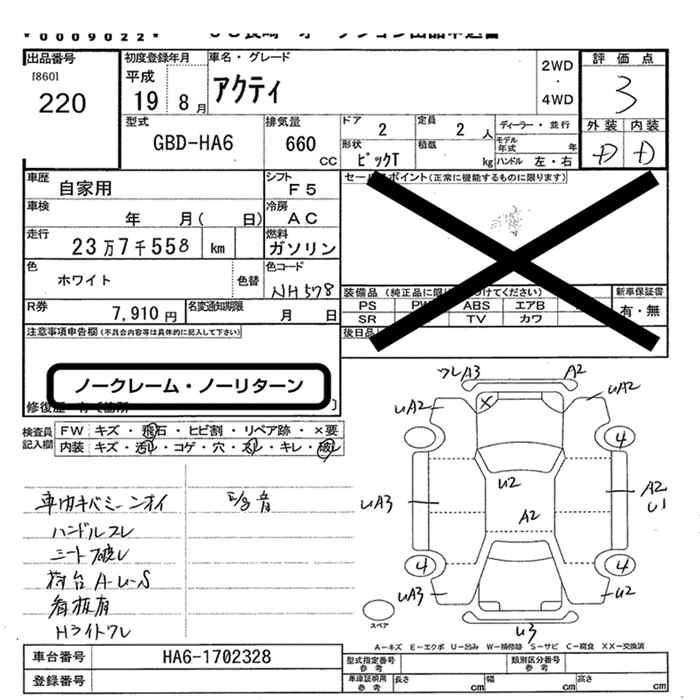 *0009022*
出品番号
[860]
220
初度登録年月
平成
19 8月
車名・グレード
アクティ
2WD
・
4WD
評価点
3
外装 内装
D D
型式
GBD-HA6
排気量
660
CC
ドア
2
定員
2 人
ディーラー・並行
モデル年式 年
形状
ピックT
積載
kg
ハンドル 左・右
車歴
自家用
シフト
F5
車検
年 月( 日)
冷房
AC
走行
23万7千558 km
燃料
ガソリン
色
ホワイト
色替
色コード
NH578
R券
7,910円
名変通知期限
月 日
セールスポイント(正常に機能するものに限ります)
装備品(純正品に限り つけてください)
PS PW ABS エアB
SR TV カワ
新車保証書
有・無
後日品
注意事項申告欄(不具合内容等は具体的に記入して下さい)
ノークレーム・ノーリターン
修復歴
検査員
記入欄
FW キズ・飛石・ヒビ割・リペア跡・×要
内装 キズ・汚レ・コゲ・穴・スレ・キレ・破レ
車内キバミーンオイ
ハンドルスレ
シート破レ
荷台A-U-S
看板有
Hライトワレ
E/g音
ワレA3
A2
UA2
UA2
X
4
U2
UA3
A2
A2
U1
4
4
UA3
U2
U3
スペア
A-キズ E-エクボ U-凹み W-補修跡 S-サビ C-腐食 XX-交換済
車台番号
HA6-1702328
登録番号
型式指定番号
参考
類別区分番号
参考
車庫証明用
参考
長さ cm
幅 cm
高さ cm